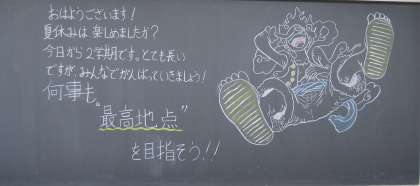 おはようございます!
夏休みは楽しめましたか?
今日から2学期です。とても長い
ですが、みんなでがんばっていきましょう!
何事も、
"最高地点"
を目指そう!!